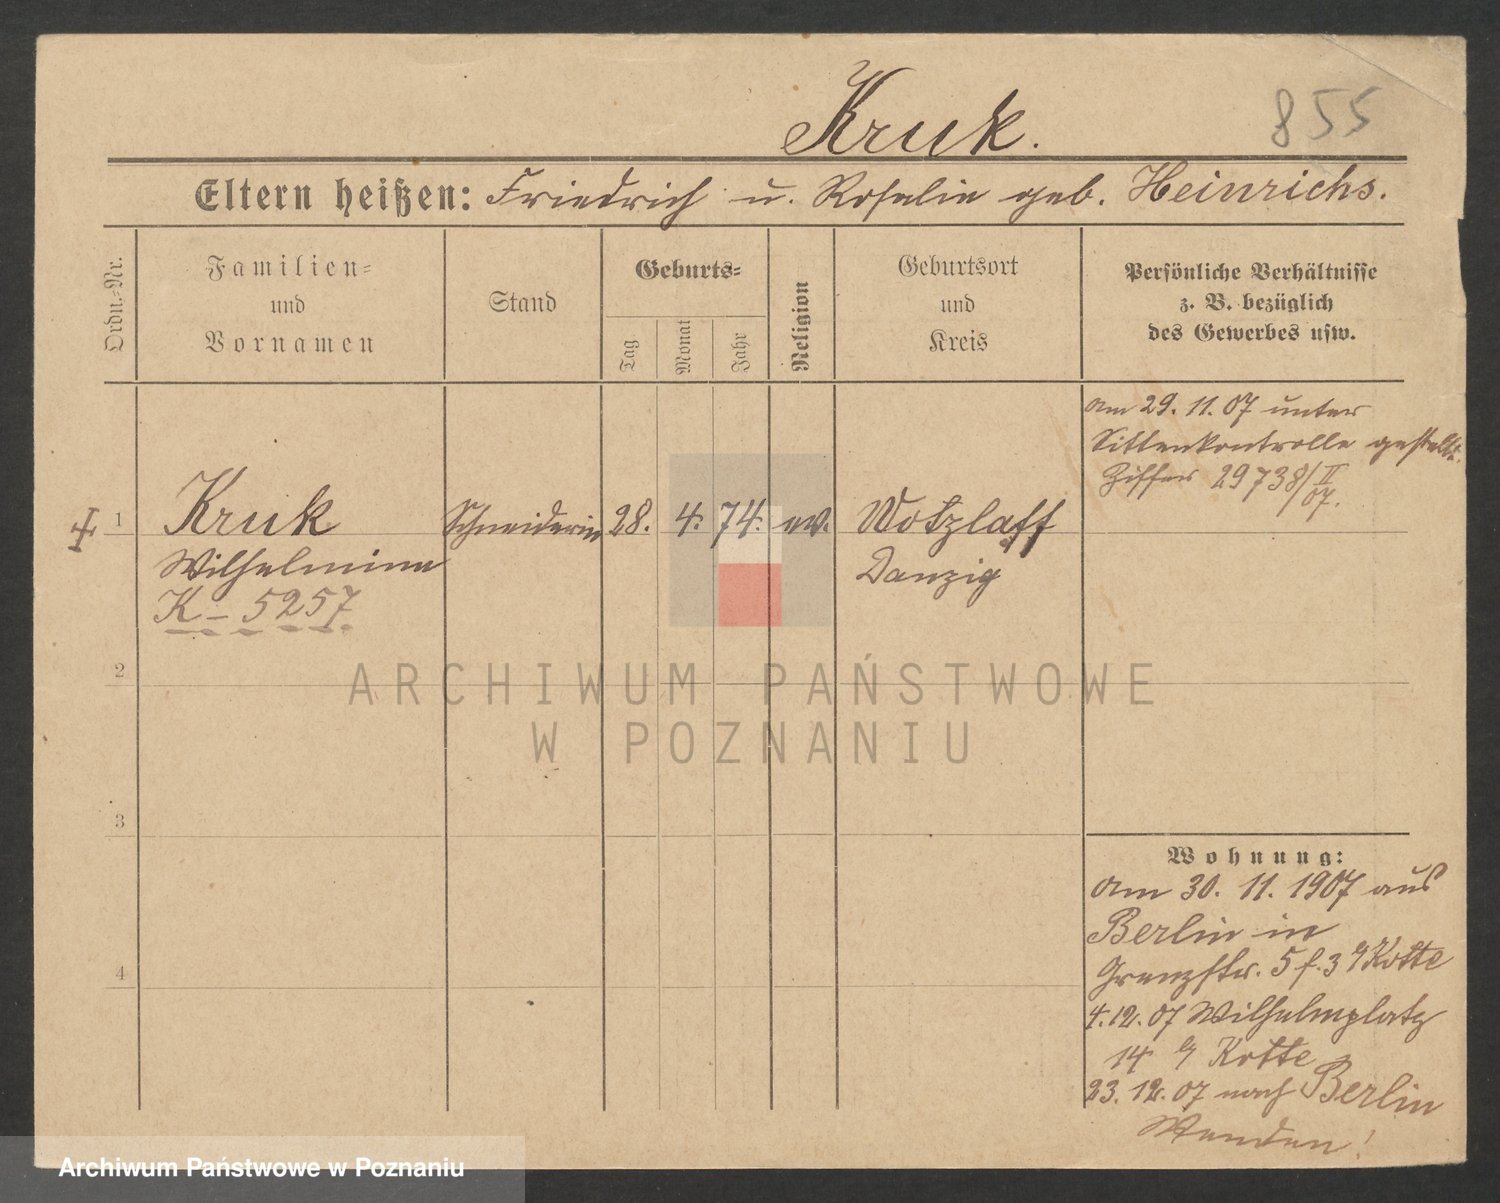 Kruk.
855
Eltern heißen: Friedrich u. Rosalie geb. Heinrichs.
Ordn.-Nr.
Familien-
und
Vornamen
Stand
Geburts-
Tag
Monat
Jahr
Religion
Geburtsort
und
Kreis
Persönliche Verhältnisse
z. B. bezüglich
des Gewerbes usw.
am 29. 11. 07 unter
Sittenkontrolle gestellt.
Ziffer 29738/II
07.
1 Kruk Schneiderin 28. 4. 74. ev. Wotzlaff
Wilhelmine Danzig
K – 5257
2
3
4
Wohnung:
am 30. 11. 1907 aus
Berlin in
Grenzstr. 5 f. 3 b/ Kotte
4. 12. 07 Wilhelmplatz
14 b/ Kotte
23. 12. 07 nach Berlin
Wenden!
ARCHIWUM PAŃSTWOWE
W POZNANIU
Archiwum Państwowe w Poznaniu